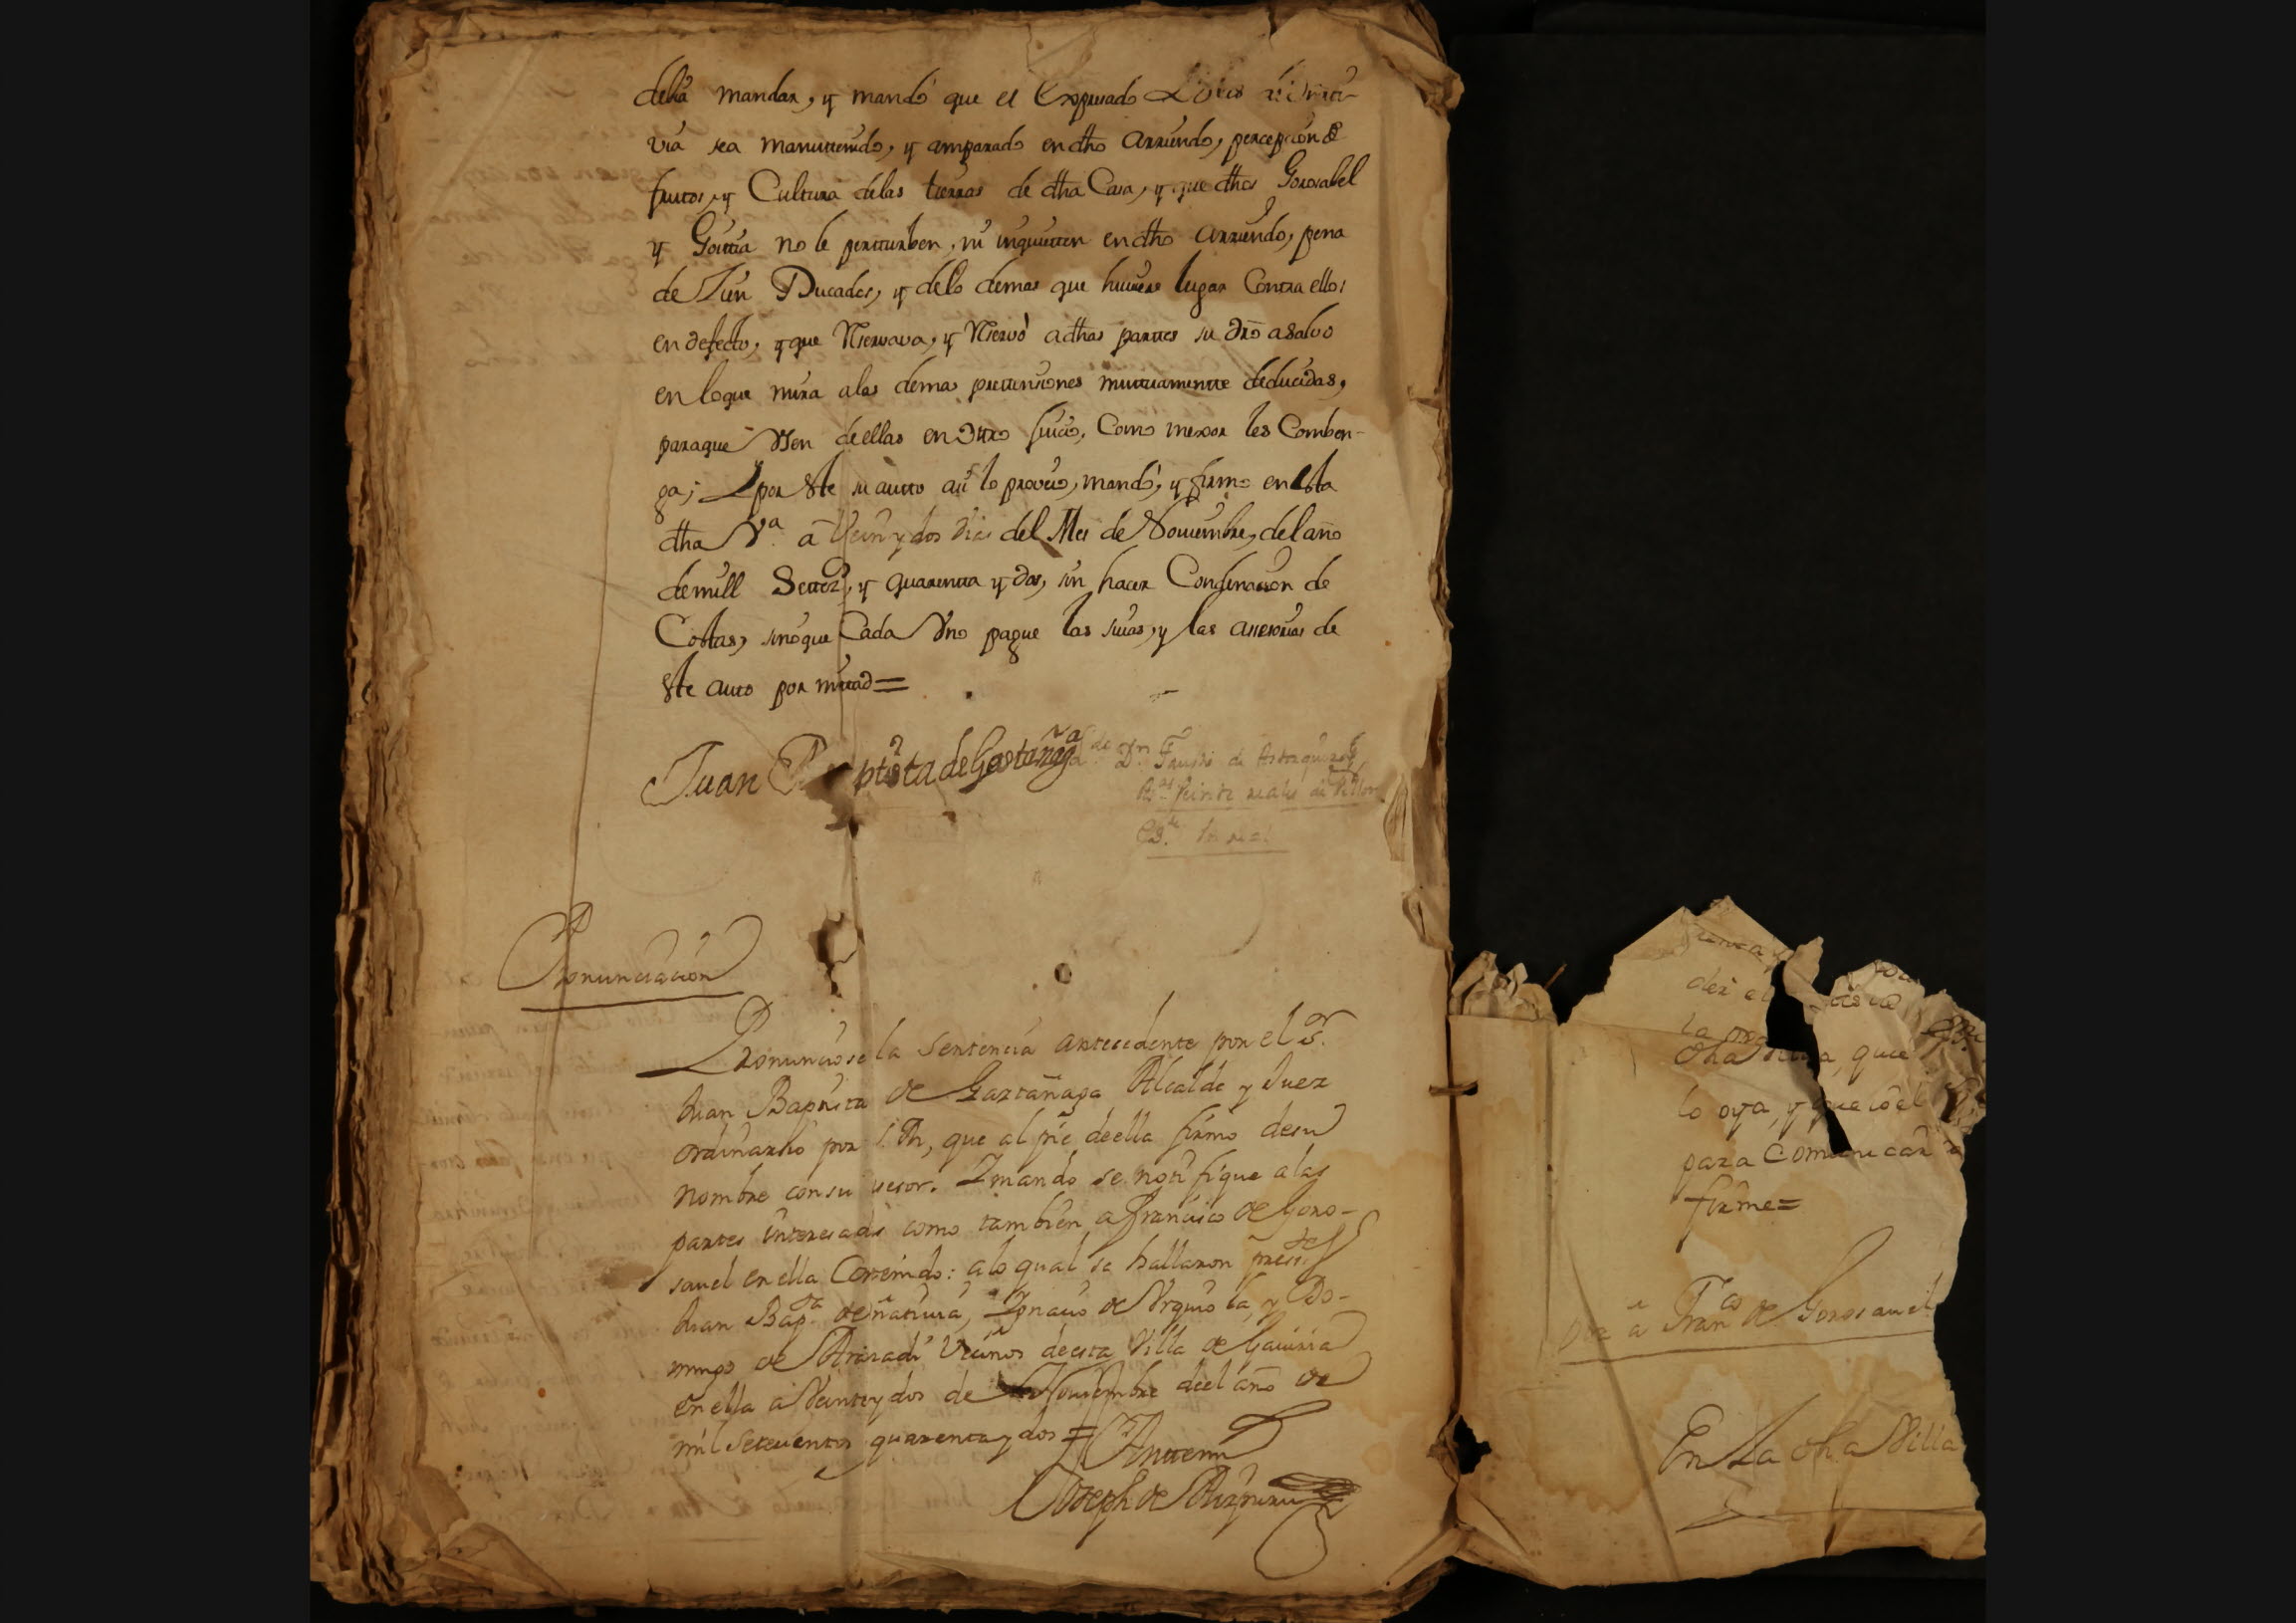 devia mandar, y mandó que el expresado
via sea manuttenido, y amparado en dho arriendo, percepcion de
fruttos, y Cultura delas tierras de dha Casa, y que dhos Gorosabel
y Goitia no le pertturben, ni inquietten en dho arriendo, pena
de Cien Ducados, y delo demas que huviere lugar Contra ellos
en defecto, y que Reservava, y Reservó a dhas parttes su dro a salvo
en loque mira alas demas prettensiones muttuamentte deducidas,
paraque Usen de ellas en Ottro Juicio, Como mexor les Comben-
ga; Y por Este su autto asi lo proveió, mandó, y firmó en Esta
dha Va. a Veinte y dos dias del Mes de Noviembre, del año
de mill Settez.s y quarentta y dos, sin hacer Condenacion de
Costas, sino que Cada Uno pague las suias, y las asesorias de
Este auto por mitad =
Juan Baptista de Gastañaga
Dn. de
Veinte reales de Vellon
Pronunciacion
Pronunciose la Sentencia antecedente por el Sr.
Juan Baptista de Gaztañaga Alcalde y Juez
ordinario por S. M, que al pie de ella firmó desu
nombre con su asesor. Y mandó se notifique alas
partes interesadas como tambien a Francisco de Goro-
savel en ella Contenido: alo qual se hallaron press.tes
Juan Bap.ta de Ignacio de Urquiola, y Do-
mingo de vecinos de esta Villa de Gaviria
en ella a Veinte y dos de Noviembre deel año de
mil setecientos quarenta y dos =
Antemi
Joseph de Aizpuru
dha Villa, que
lo oya, y que
para comunicar
firme =
a Fran.co de Gorosavel
En La dha Villa